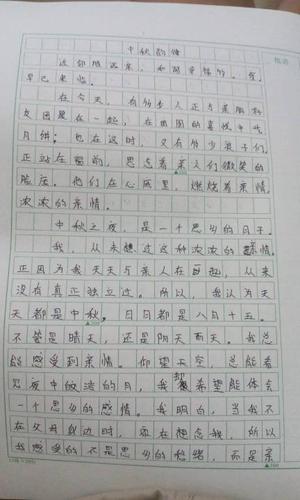 中秋韵律
在今天，有的多人正与亲朋好
友团聚在一起，在团圆的喜悦中吃
月饼；也在这时，又有多少浪子们，
正站在窗前，思念着亲人们微笑的
脸庞。他们在心底里，燃烧着亲情，
浓浓的亲情。
中秋之夜，是一个思乡的日子。
我，从未想过这种浓浓的亲情。
正因为我天天与亲人在一起，从来
没有真正独立过。所以，我认为天
天都是中秋，日日都是八月十五。
不管是晴天，还是阴天雨天。我总
能感受到亲情。仰望天空，总能看
见夜中皎洁的月，我却希望能体会
一个思乡的感情。我明白，当我不
在父母身边时，都在想念我，所以
我感受的不是思乡的愁绪，而是亲